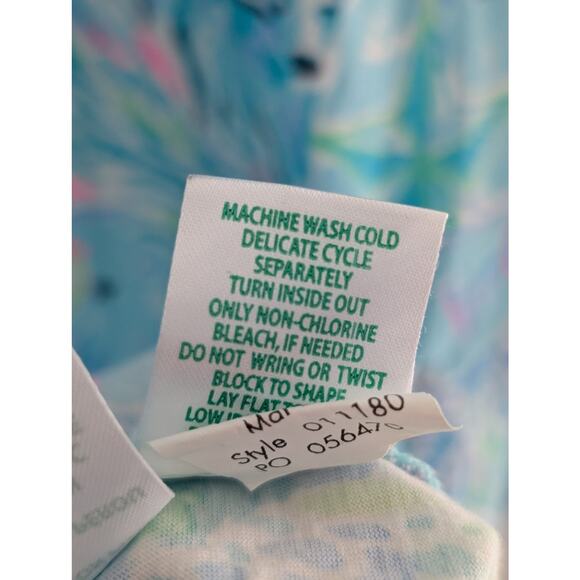 MACHINE WASH COLD
DELICATE CYCLE
SEPARATELY
TURN INSIDE OUT
ONLY NON-CHLORINE
BLEACH, IF NEEDED
DO NOT WRING OR TWIST
BLOCK TO SHAPE
LAY FLAT
LOW
Style 011180
PO 05647